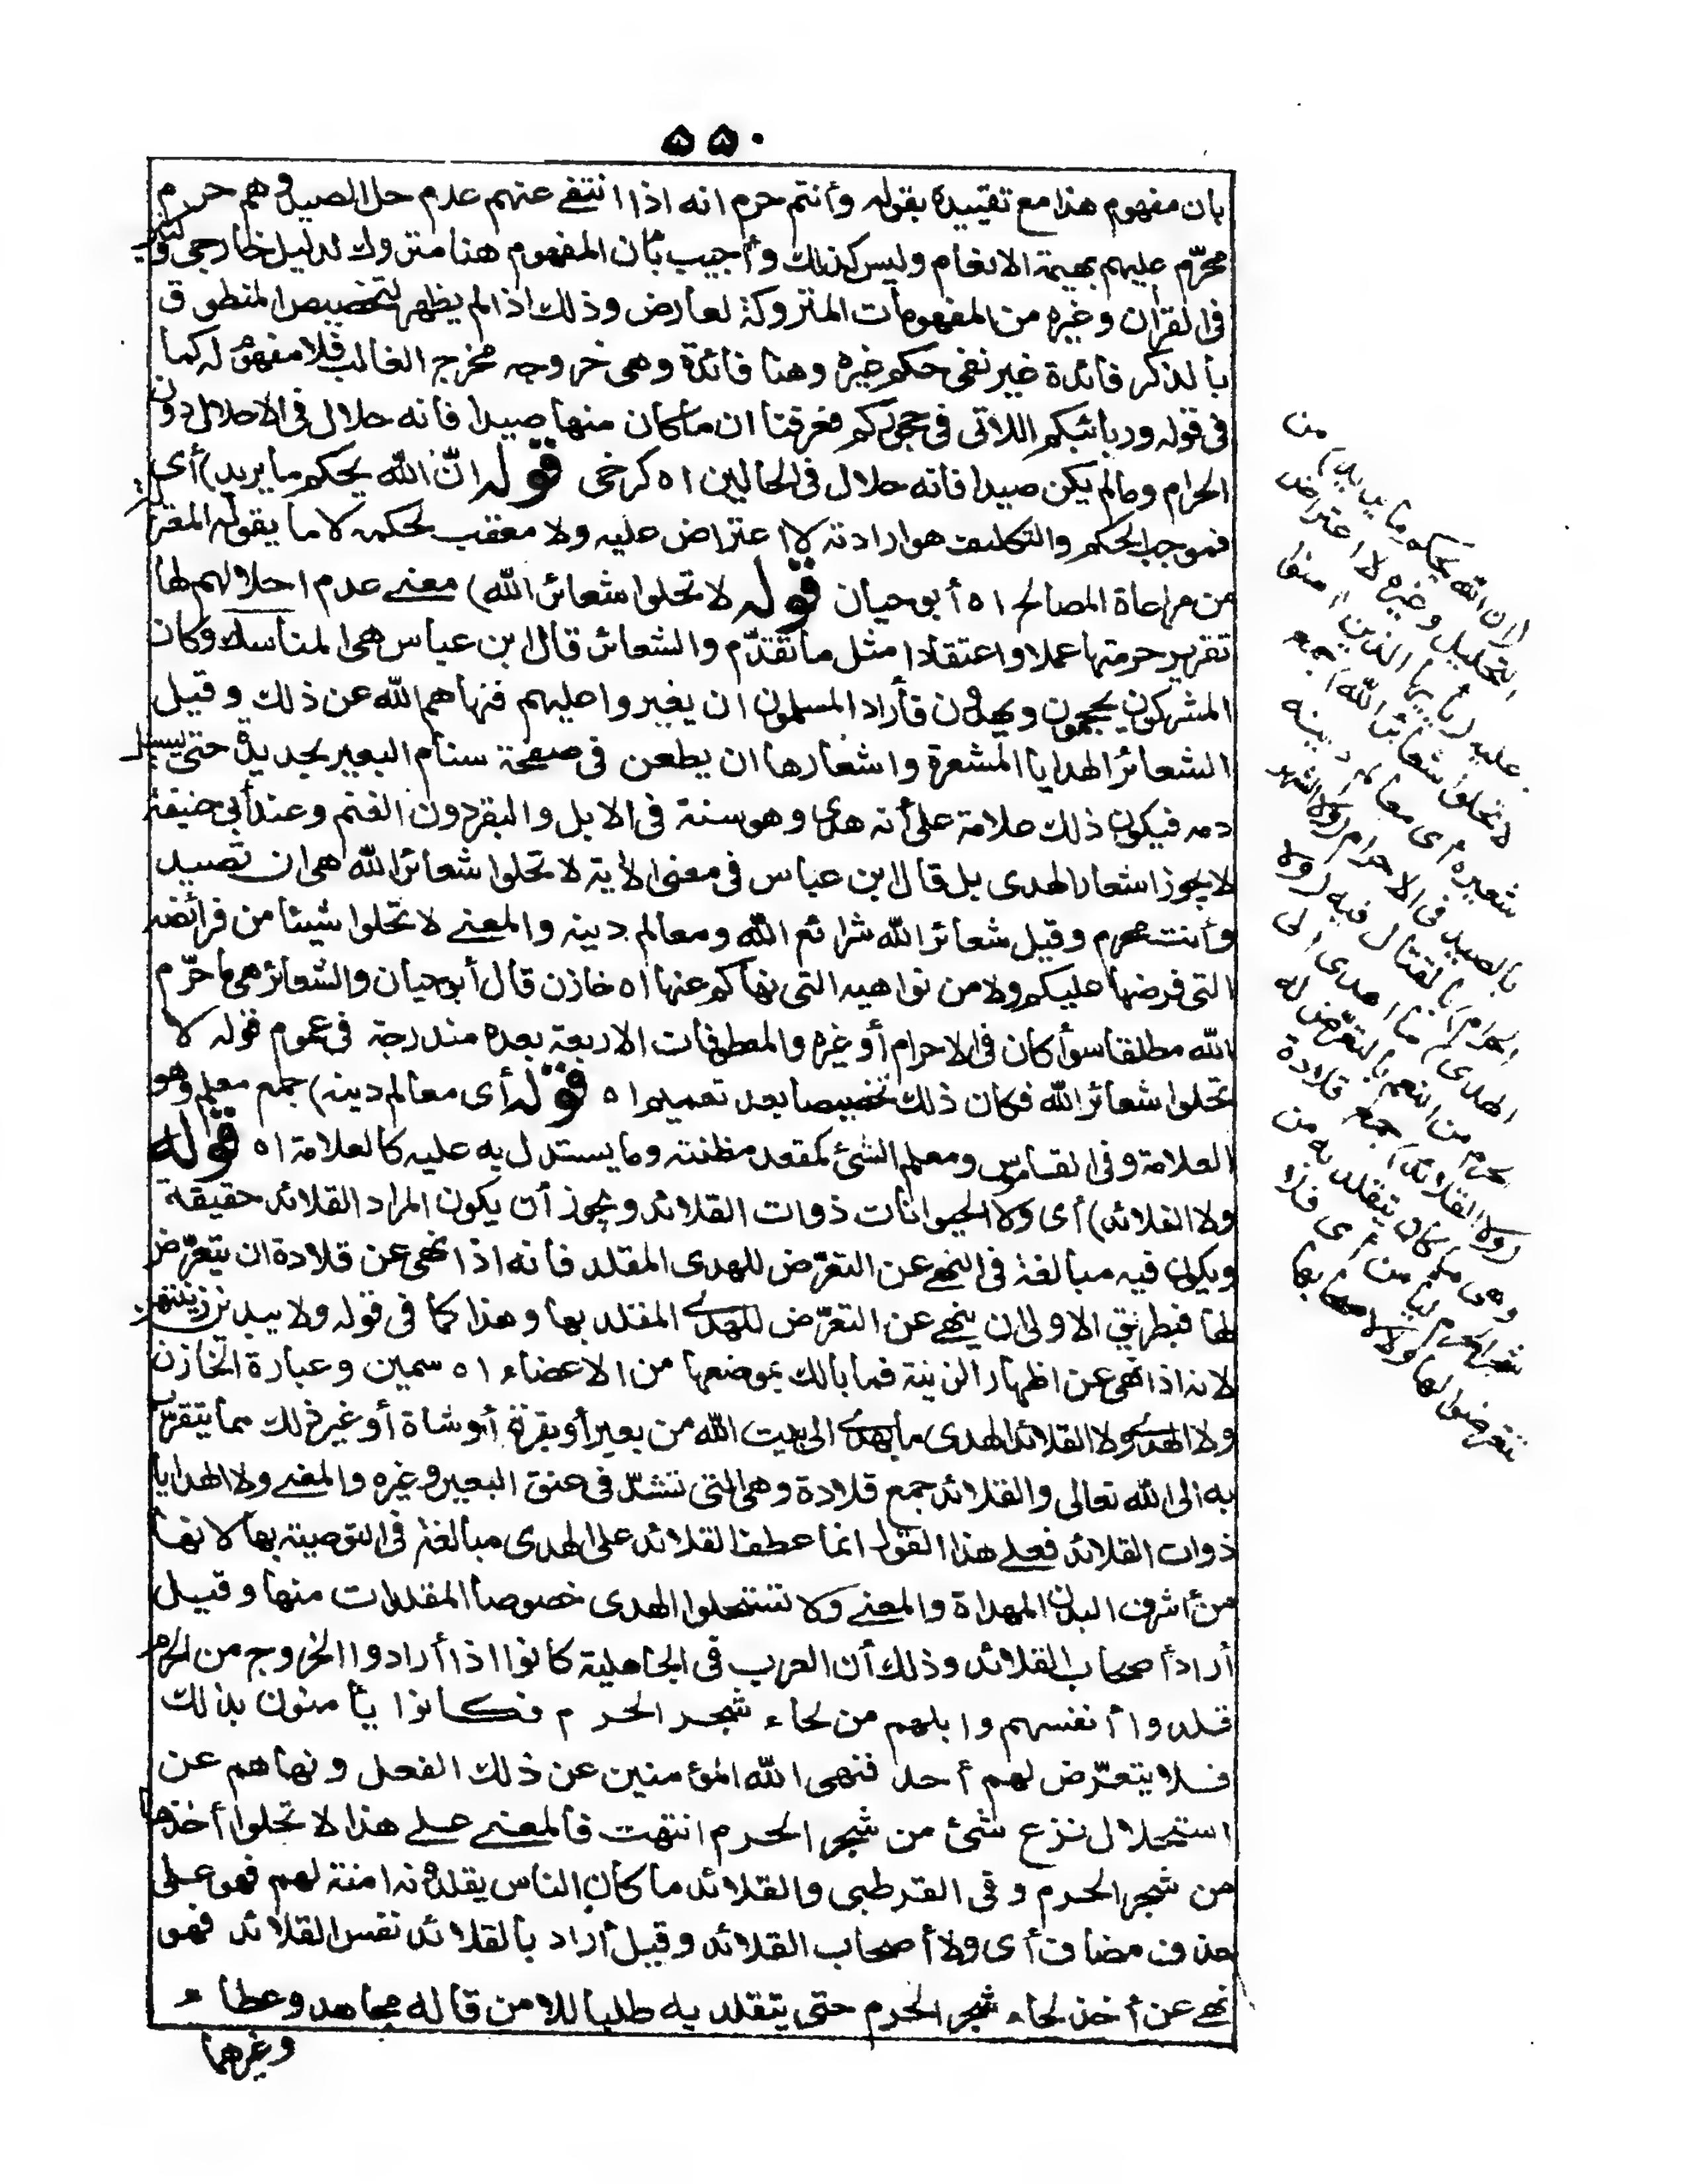 ٥٥٠
بان مفهوم هذا مع تقييده بقوله وأنتم حرم انه اذا انتفى عنهم عدم حل الصيد وهم حرم
محرّم عليهم بهيمة الانعام وليس كذلك وأجيب بأن المفهوم هنا متروك لدليل خارجى وكثير
فى القرآن وغيره من المفهومات المتروكة لعارض وذلك اذا لم يظهر لتخصيص المنطوق
بالذكر فائدة غير نفى حكم غيره وهنا فائدة وهى خروجه مخرج الغالب فلا مفهوم له كما
فى قوله وربائبكم اللاتى فى حجوركم فعرفنا ان ما كان منها صيدا فانه حلال فى الاحلال دون
الحرام وما لم يكن صيدا فانه حلال فى الحالين اه كرخى قوله انّ الله يحكم ما يريد) أى
فموجب الحكم والتكليف هو ارادته لا اعتراض عليه ولا معقب لحكمه لا ما يقوله المعتزلة
من مراعاة المصالح اه أبو حيان قوله لا تحلوا شعائر الله) معنى عدم احلالهم لها
تقرير حرمتها عملا واعتقادا مثل ما تقدّم والشعائر قال ابن عباس هى المناسك وكان
المشركون يحجون ويهدون فأراد المسلمون ان يغيروا عليهم فنهاهم الله عن ذلك وقيل
الشعائر الهدايا المشعرة واشعارها ان يطعن فى صفحة سنام البعير بحديدة حتى يسيل
دمه فيكون ذلك علامة على أنه هدى وهو سنة فى الابل والبقر دون الغنم وعند أبى حنيفة
لا يجوز اشعار الهدى بل قال ابن عباس فى معنى الآية لا تحلوا شعائر الله هى ان تصيد
وأنت محرم وقيل شعائر الله شرائع الله ومعالم دينه والمعنى لا تحلوا شيئا من فرائضه
التى فرضها عليكم ولا من نواهيه التى نهاكم عنها اه خازن قال أبو حيان والشعائر هى ما حرّم
الله مطلقا سوأ كان فى الاحرام أو غيره والمعطوفات الاربعة بعده مندرجة فى عموم قوله لا
تحلوا شعائر الله فكان ذلك تخصيصا بعد تعميم اه قوله أى معالم دينه) جمع معلم وهو
العلامة وفى القاموس ومعلم الشئ كمقعد مظنته وما يستدل به عليه كالعلامة اه قوله
ولا القلائد) أى ولا الحيوانات ذوات القلائد ويجوز أن يكون المراد القلائد حقيقة
ويكون فيه مبالغة فى النهى عن التعرّض للهدى المقلد فانه اذا نهى عن قلادة ان يتعرّض
لها فبطريق الاولى ان ينهى عن التعرّض للهدى المقلد بها وهذا كما فى قوله ولا يبدين زينتهن
لانه اذا نهى عن اظهار الزينة فما بالك بموضعها من الاعضاء اه سمين وعبارة الخازن
ولا الهدى ولا القلائد الهدى ما يهدى الى بيت الله من بعير أو بقرة أو شاة أو غير ذلك مما يتقرّب
به الى الله تعالى والقلائد جمع قلادة وهى التى تشدّ فى عنق البعير وغيره والمعنى ولا الهدايا
ذوات القلائد فعلى هذا القول انما عطف القلائد على الهدى مبالغة فى التوصية بها لانها
من أشرف البدن المهداة والمعنى ولا تستحلوا الهدى خصوصا المقلدات منها وقيل
أراد أصحاب القلائد وذلك أن العرب فى الجاهلية كانوا اذا أرادوا الخروج من الحرم
قلدوا أنفسهم وابلهم من لحاء شجر الحرم فكانوا يأمنون بذلك
فلا يتعرّض لهم أحد فنهى الله المؤمنين عن ذلك الفعل ونهاهم عن
استحلال نزع شئ من شجر الحرم انتهت فالمعنى على هذا لا تحلوا أخذها
من شجر الحرم وفى القرطبى والقلائد ما كان الناس يقلدونه امنة لهم فهو على
حذف مضاف أى ولا أصحاب القلائد وقيل أراد بالقلائد نفس القلائد فهو
نهى عن أخذ لحاء شجر الحرم حتى يتقلد به طلبا للامن قاله مجاهد وعطاء
وغيرهما
(ان الله يحكم ما يريد) من
التحليل وغيره لا اعتراض
عليه (يأيها الذين امنوا
لا تحلوا شعائر الله) جمع
شعيرة أى معالم دينه
بالصيد فى الاحرام (ولا الشهر
الحرام) بالقتال فيه (ولا
الهدى) ما اهدى الى
الحرم من النعم بالتعرّض له
(ولا القلائد) جمع قلادة
وهى ما كان يتقلد به من
شجر الحرم ليأمن أى فلا
تتعرضوا لها ولا لأصحابها